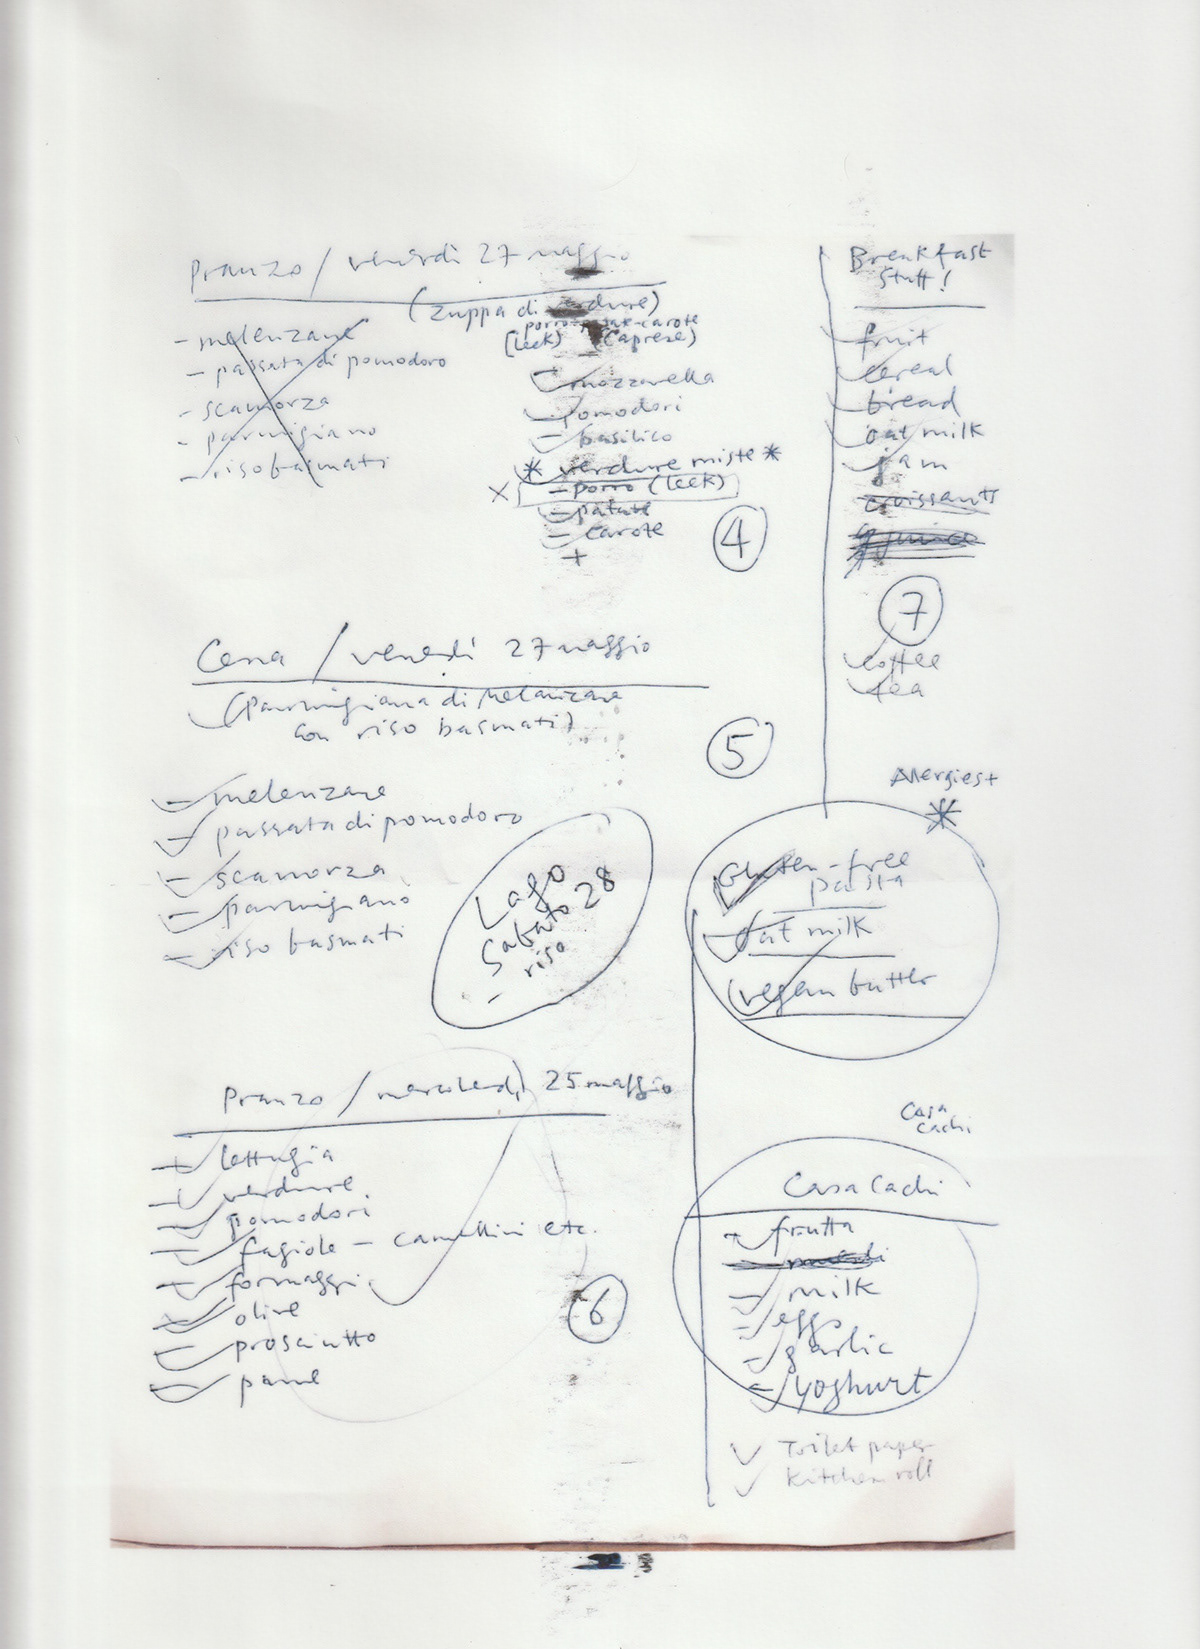 Pranzo / venerdì 27 maggio
(zuppa di verdure)
porro-patate-carote
(leek) (Caprese)
- melenzane
- passata di pomodoro
- scamorza
- parmigiano
- riso basmati
- mozzarella
- pomodori
- basilico
* verdure miste *
x - porro (leek)
- patate
- carote
+
4
Cena / venerdì 27 maggio
(Parmigiana di Melanzane
con riso basmati)
5
- melenzane
- passata di pomodoro
- scamorza
- parmigiano
- riso basmati
Lago
Sabato 28
- riso
Pranzo / mercoledì 25 maggio
- lettugia
- verdure
- pomodori
- fagiole - canellini etc.
- formaggi
- olive
- prosciutto
- pane
6
Breakfast
Stuff!
- fruit
- cereal
- bread
- oat milk
- jam
croissants
7
- coffee
- tea
Allergies+
*
Gluten-free
pasta
- oat milk
(vegan butter
Casa
Cachi
Casa Cachi
- frutta
- milk
- eggs
- garlic
- yoghurt
Toilet paper
Kitchen roll